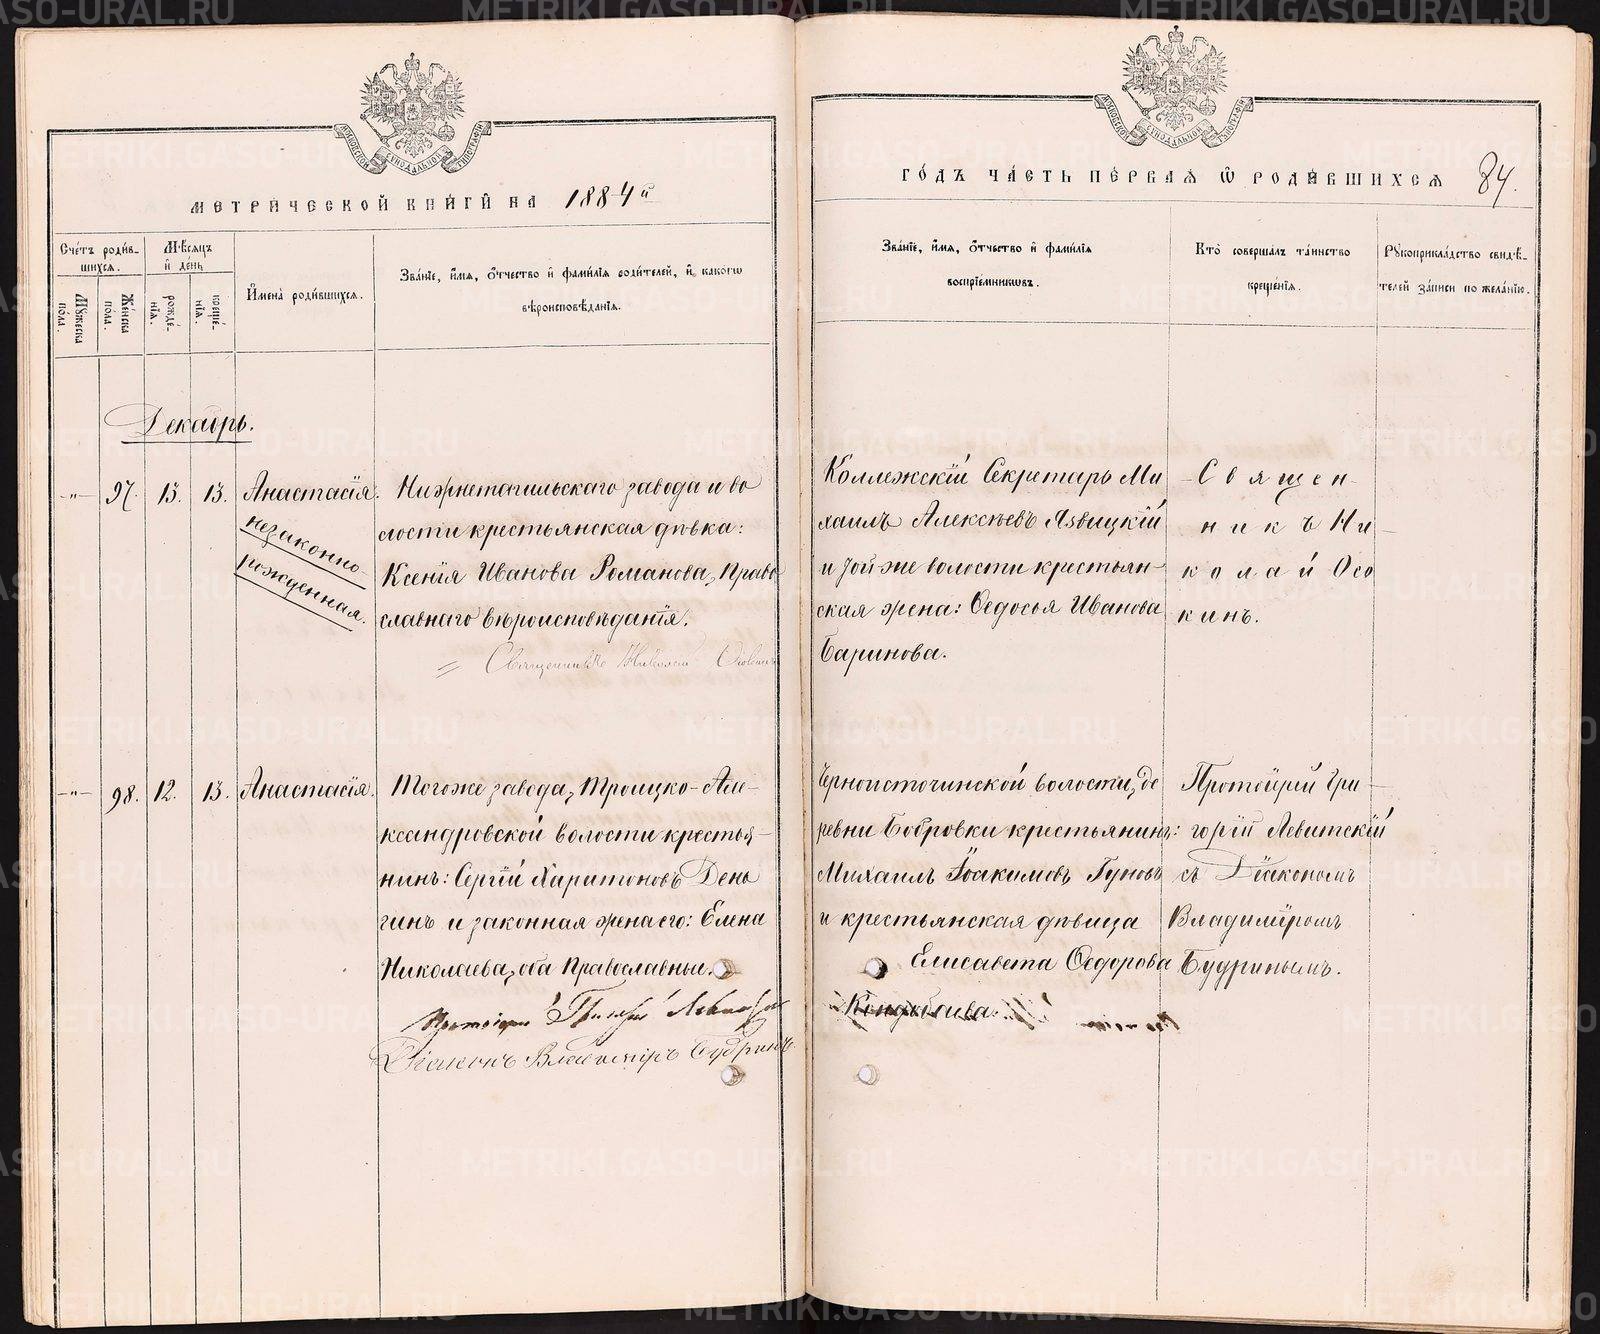 МЕТРИЧЕСКОЙ КНИГИ НА 1884й
Счетъ родив-
шихся.
Мѣсяцъ
и день
Мужеска пола.
Женска пола.
рожде-
нія.
креще-
нія.
Имена родившихся.
Званіе, имя, отчество и фамилія родителей, и какогѡ
вѣроисповѣданія.
Декабрь.
-"-
97.
13.
13.
Анастасія.
незаконно-
рожденная.
Нижнетагильскаго завода и во
лости крестьянская дѣвка:
Ксенія Иванова Романова, Право
славнаго вѣроисповѣданія.
Священникъ Николай Осокинъ
-"-
98.
12.
13.
Анастасія.
Тогоже завода, Троицко-Але-
ксандровской волости крестья-
нинъ: Сергій Харитоновъ День
гинъ и законная жена его: Елена
Николаева, оба Православные.
Протоіерей Григорій Левитскій
Діаконъ Владиміръ Будринъ
ГОДЪ ЧАСТЬ ПЕРВАЯ Ѿ РОДИВШИХСЯ 84.
Званіе, имя, отчество и фамилія
воспріемникѡвъ.
Кто совершалъ таинство
крещенія.
Рукоприкладство свидѣ-
телей записи по желанію.
Коллежскій Секретарь Ми
хаилъ Алексѣевъ Язвицкій
и той же волости крестьян-
ская жена: Ѳедосья Иванова
Баринова.
Священ-
никъ Ни-
колай Осо
кинъ.
Черноисточинской волости, де
ревни Бобровки крестьянинъ:
Михаилъ Іоакимовъ Гуновъ
и крестьянская дѣвица
Елисавета Ѳедорова
Протоіерей Гри-
горій Левитскій
съ Діакономъ
Владиміромъ
Будринымъ.
METRIKI.GASO-URAL.RU